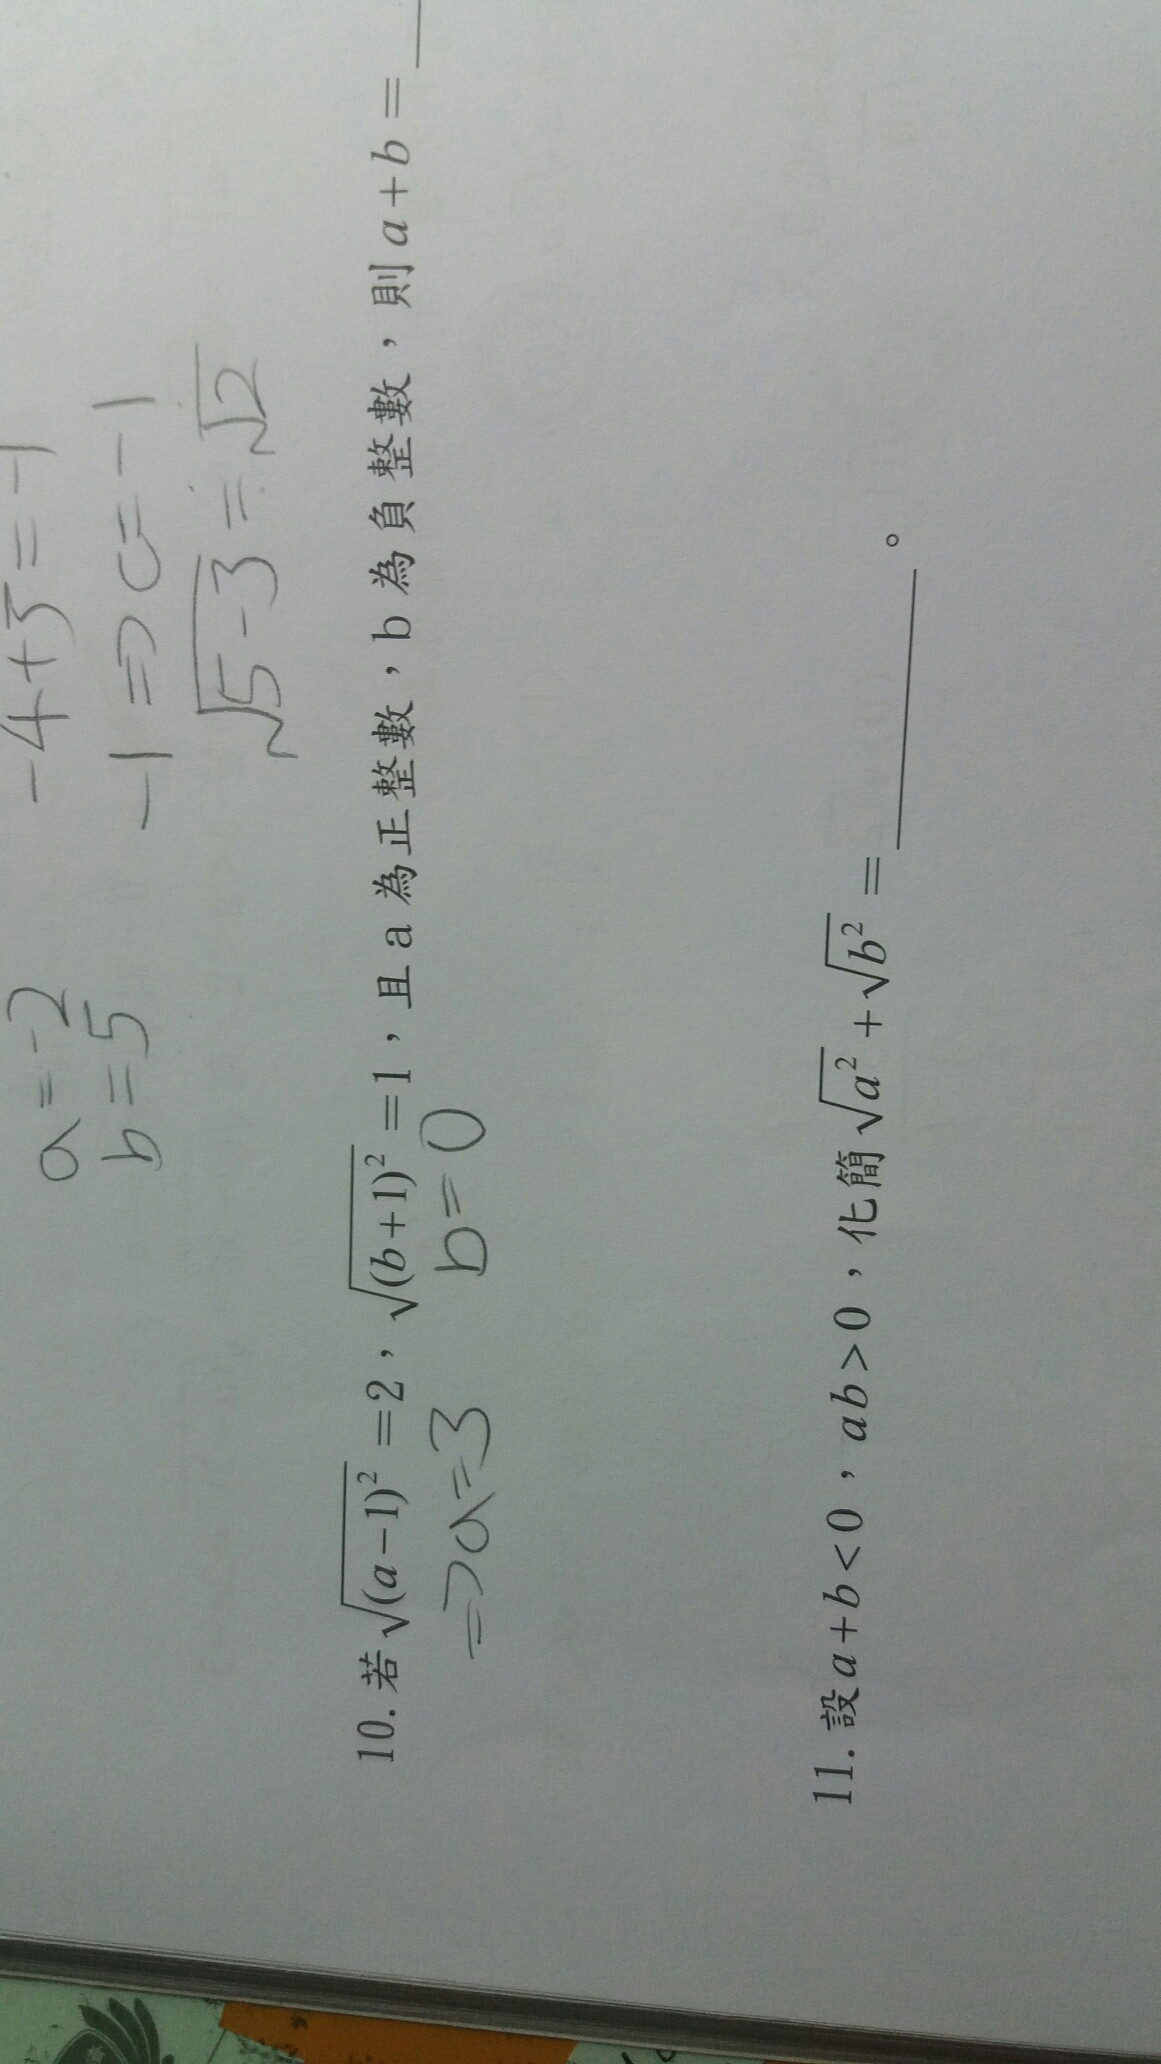 a=-2 -4+3=-1
b=5 -1=>c=-1
√5-3=√2
10. 若√(a-1)²=2，√(b+1)²=1，且a為正整數，b為負整數，則a+b=
=>a=3 b=0
11. 設a+b<0，ab>0，化簡√a²+√b²=______。